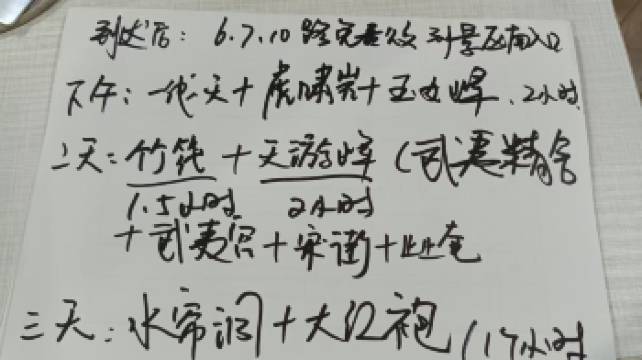 到达后：6.7.10路免费 到景区南入口
下午：一线天+虎啸岩+玉女峰、2小时
二天：竹筏+天游峰（武夷精舍
1.5小时 2小时
+武夷宫+宋街+
三天：水帘洞+大红袍（1个小时